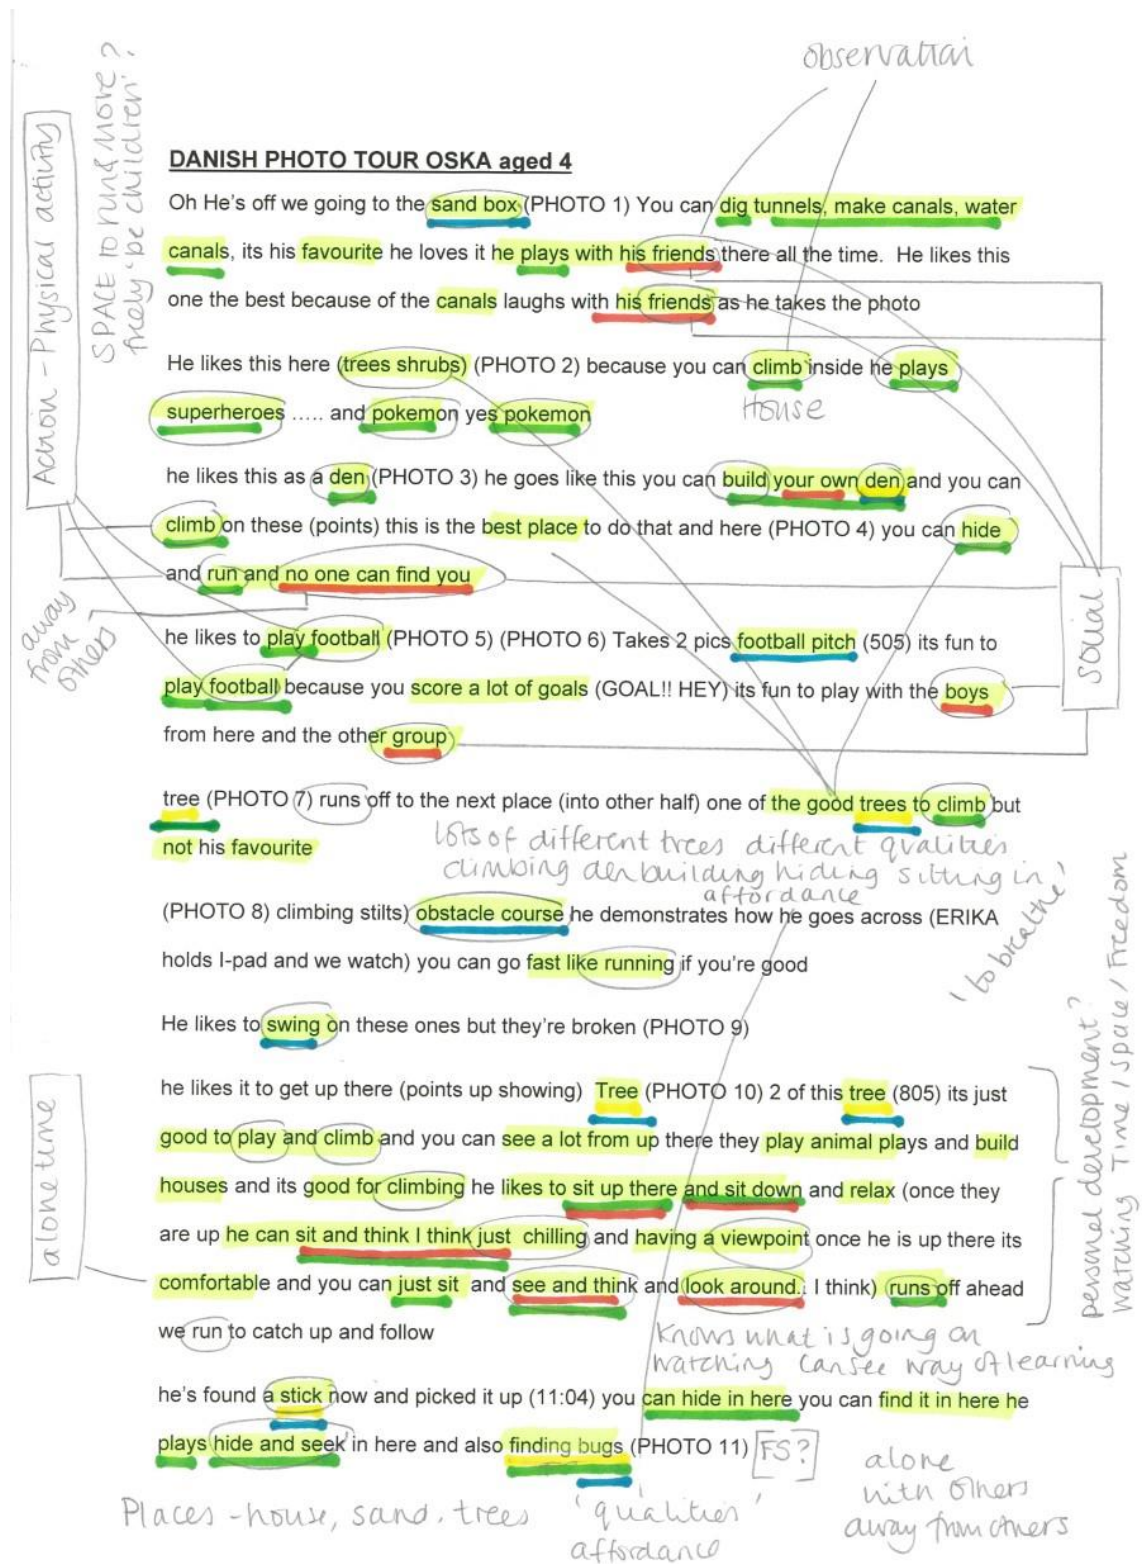 observation
Action - Physical activity
SPACE to run & more?
freely 'be children'
DANISH PHOTO TOUR OSKA aged 4
Oh He's off we going to the sand box (PHOTO 1) You can dig tunnels, make canals, water
canals, its his favourite he loves it he plays with his friends there all the time. He likes this
one the best because of the canals laughs with his friends as he takes the photo
He likes this here (trees shrubs) (PHOTO 2) because you can climb inside he plays
House
superheroes ..... and pokemon yes pokemon
he likes this as a den (PHOTO 3) he goes like this you can build your own den and you can
climb on these (points) this is the best place to do that and here (PHOTO 4) you can hide
and run and no one can find you
away
from
others
social
he likes to play football (PHOTO 5) (PHOTO 6) Takes 2 pics football pitch (505) its fun to
play football because you score a lot of goals (GOAL!! HEY) its fun to play with the boys
from here and the other group
tree (PHOTO 7) runs off to the next place (into other half) one of the good trees to climb but
not his favourite
lots of different trees different qualities
climbing den building hiding sitting in
affordance
(PHOTO 8) climbing stilts) obstacle course he demonstrates how he goes across (ERIKA
holds I-pad and we watch) you can go fast like running if you're good
'to breathe'
He likes to swing on these ones but they're broken (PHOTO 9)
personal development?
watching Time / space / Freedom
alone time
he likes it to get up there (points up showing) Tree (PHOTO 10) 2 of this tree (805) its just
good to play and climb and you can see a lot from up there they play animal plays and build
houses and its good for climbing he likes to sit up there and sit down and relax (once they
are up he can sit and think I think just chilling and having a viewpoint once he is up there its
comfortable and you can just sit and see and think and look around. I think) runs off ahead
we run to catch up and follow
Knows what is going on
watching can see way of learning
he's found a stick now and picked it up (11:04) you can hide in here you can find it in here he
plays hide and seek in here and also finding bugs (PHOTO 11) [FS?]
alone
with others
away from others
Places - house, sand, trees
'qualities'
affordance